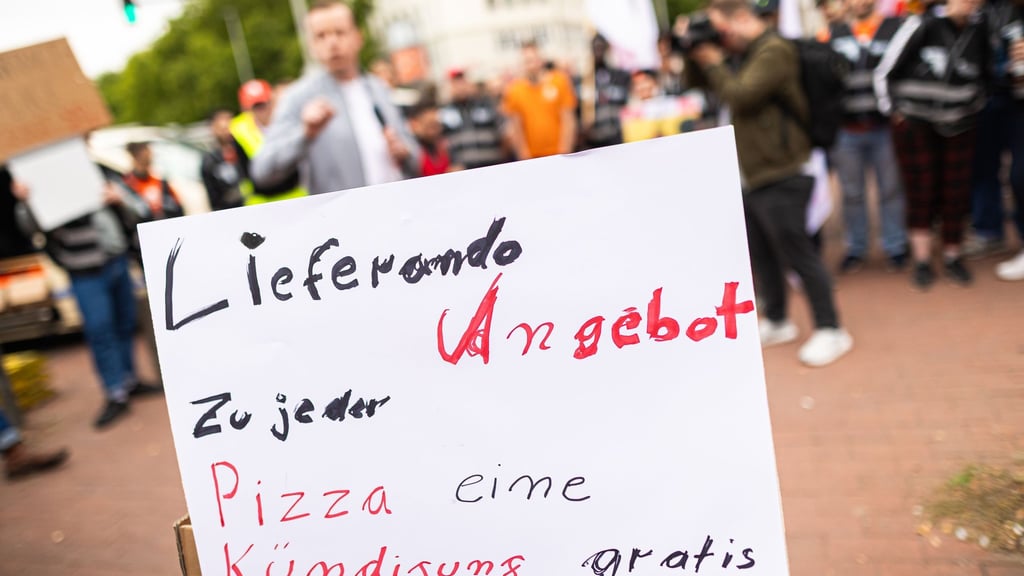 Lieferando
Angebot
Zu jeder
Pizza eine
Kündigung gratis